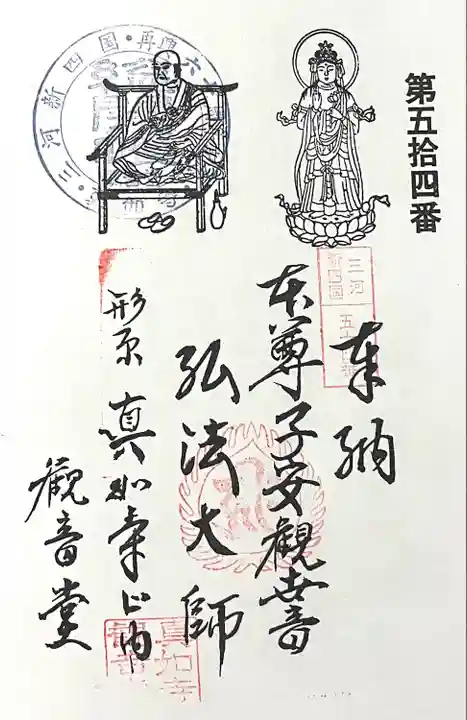 第五拾四番
奉納
三河
新四国
五十四番
本尊子安観世音
弘法大師
三河新四国・再興六十
形原 真如寺山内
観音堂
真如寺